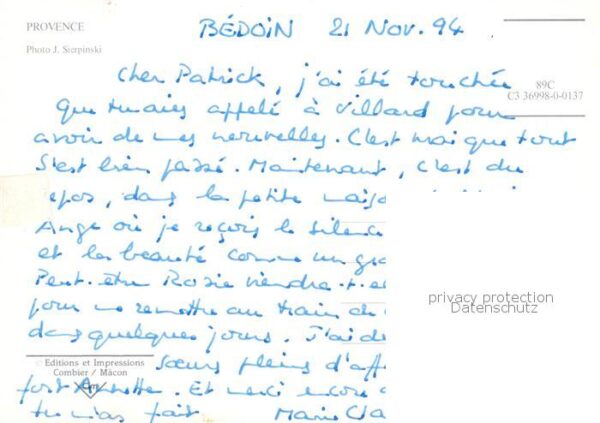 PROVENCE
Photo J. Sierpinski
BÉDOIN 21 Nov. 94
89C
C3 36998-0-0137
Cher Patrick, j'ai été touchée
que tu aies appelé à Villard pour
avoir de mes nouvelles. C'est vrai que tout
s'est bien passé. Maintenant, c'est du
epos, dans la petite
Ange où je reçois le silenc
et la beauté comme un
Peut-être Rosie viendra-t-e
pour me remettre au train de
dans quelques jours. J'ai de
Sœurs pleins d'aff
fort Annette. Et merci encore
tu m'as fait Marie Cla
privacy protection
Datenschutz
© Editions et Impressions
Combier / Mâcon